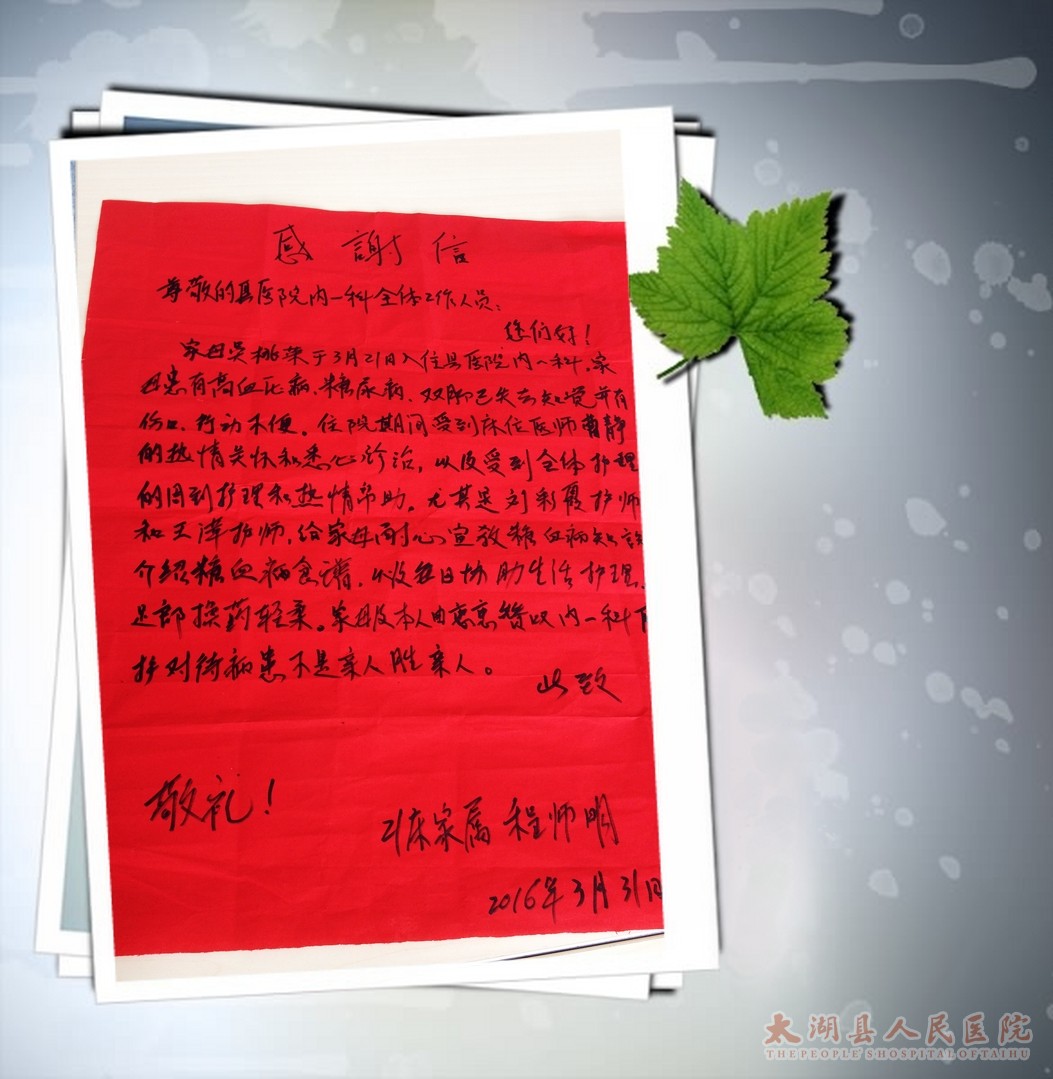 感 謝 信
尊敬的县医院内一科全体工作人员：
您们好！
家母吴桃荣于3月21日入住县医院内一科，家
母患有高血压病、糖尿病、双脚已失去知觉并有
伤口、行动不便。住院期间受到床位医师曹静
的热情关怀和悉心诊治，以及受到全体护理
的周到护理和热情帮助。尤其是刘彩霞护师
和王萍护师，给家母耐心宣教糖血病知识
介绍糖血病食谱，以及每日协助生活护理、
足部换药轻柔。家母及本人由衷高赞叹内一科
护对待病患不是亲人胜亲人。
此致
敬礼！
21床家属 程师明
2016年3月31日
太湖县人民医院
THE PEOPLE'S HOSPITAL OF TAIHU